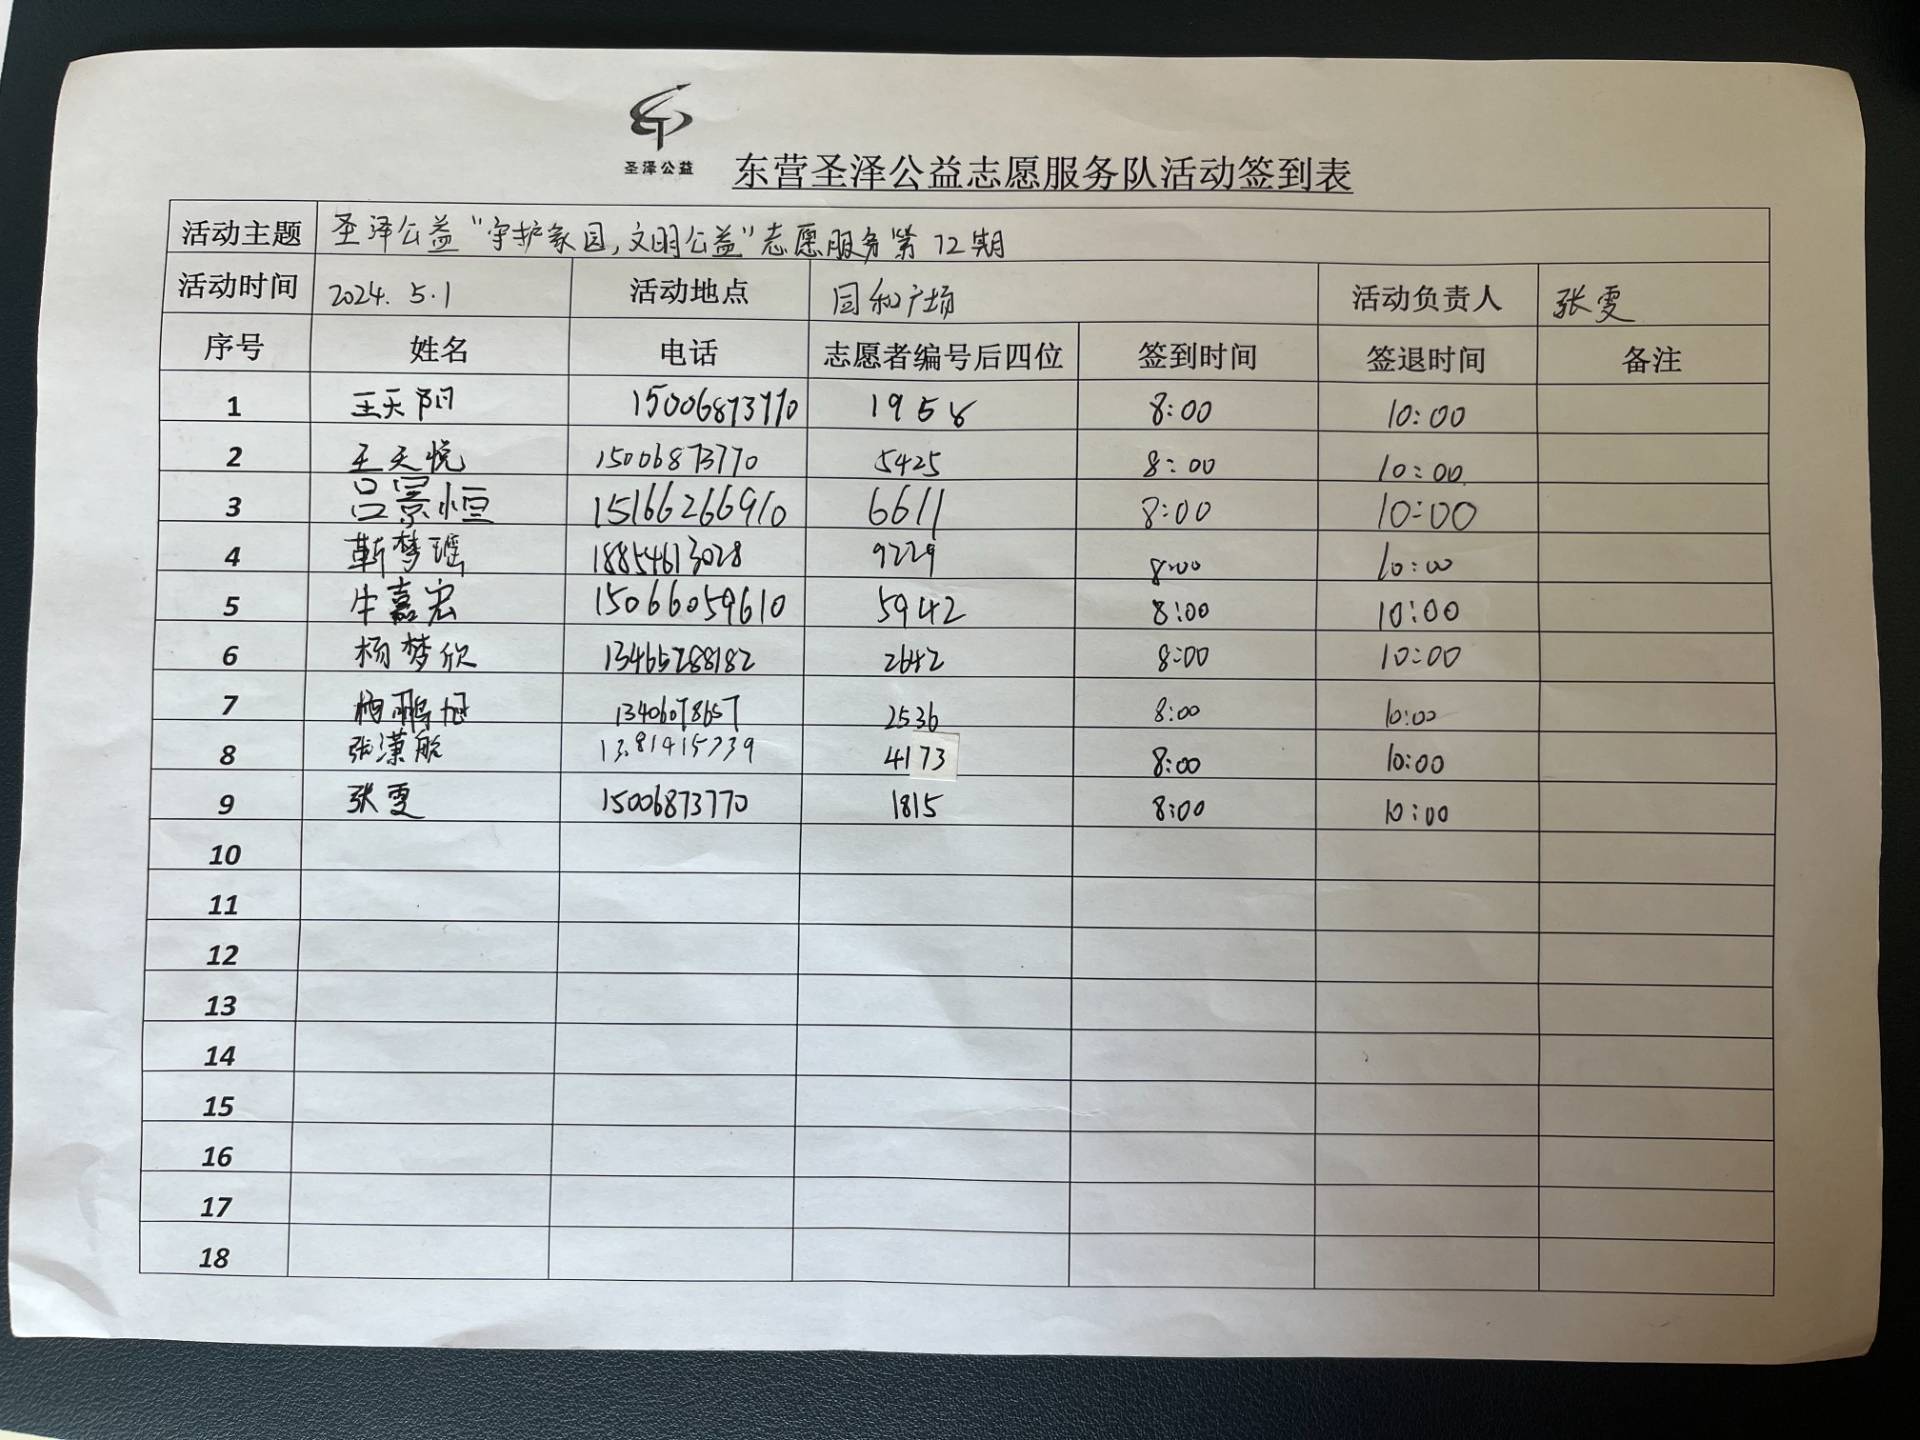 圣泽公益
东营圣泽公益志愿服务队活动签到表
活动主题 圣泽公益“守护家园,文明公益”志愿服务第72期
活动时间 2024.5.1 活动地点 国和广场 活动负责人 张雯
序号 姓名 电话 志愿者编号后四位 签到时间 签退时间 备注
1 王天阳 15006873770 1958 8:00 10:00
2 王天悦 15006873770 5425 8:00 10:00
3 吕景恒 15166266910 6611 8:00 10:00
4 靳梦瑶 18854613028 9229 8:00 10:00
5 牛嘉宏 15066059610 5942 8:00 10:00
6 杨梦欣 13465288182 2642 8:00 10:00
7 杨鹏旭 13406078657 2536 8:00 10:00
8 张潇航 4173 8:00 10:00
9 张雯 15006873770 1815 8:00 10:00
10
11
12
13
14
15
16
17
18